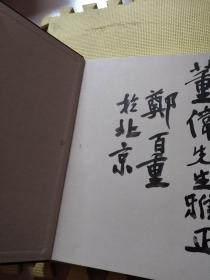 董偉先生雅正
鄭百重
於北京